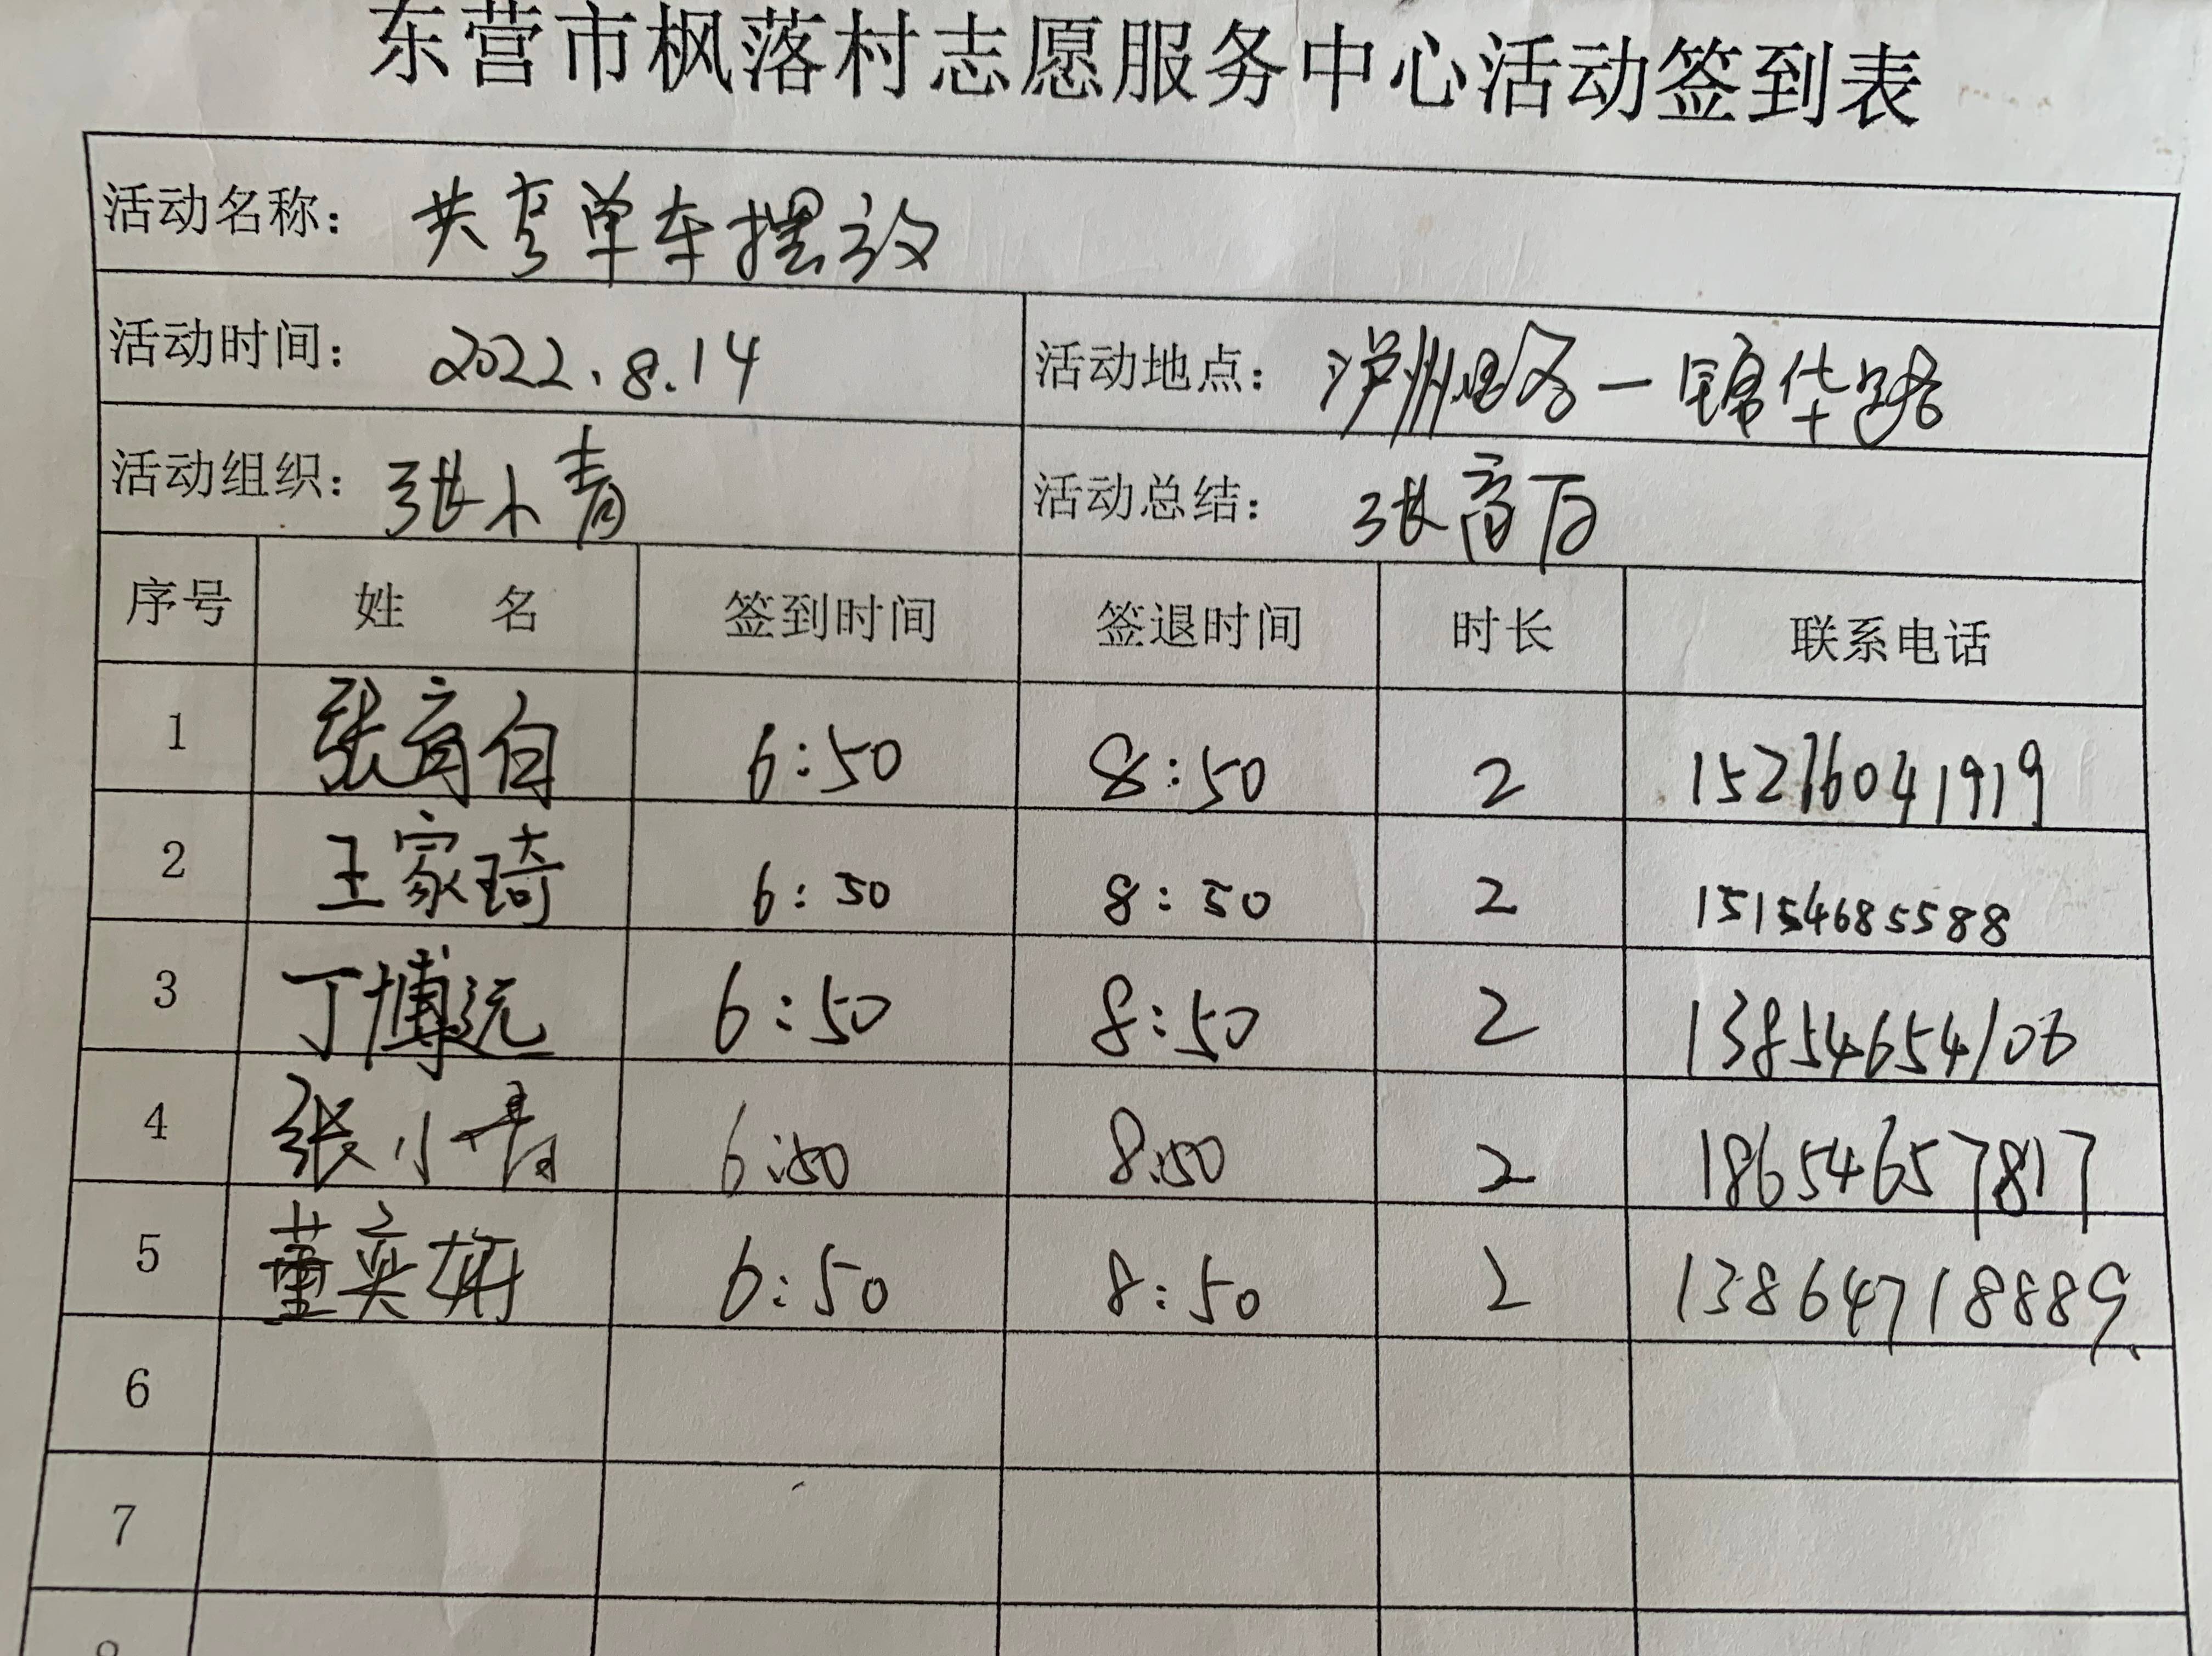 东营市枫落村志愿服务中心活动签到表
活动名称： 共享单车摆放
活动时间： 2022.8.14 活动地点： 泸州路一锦华路
活动组织： 张小青 活动总结： 张
序号 姓 名 签到时间 签退时间 时长 联系电话
1 张 6:50 8:50 2 15276041919
2 王家琦 6:50 8:50 2 15154685588
3 丁博远 6:50 8:50 2 13854654106
4 张小青 6:50 8:50 2 18654657817
5 董奕妍 6:50 8:50 2 13864718889
6
7